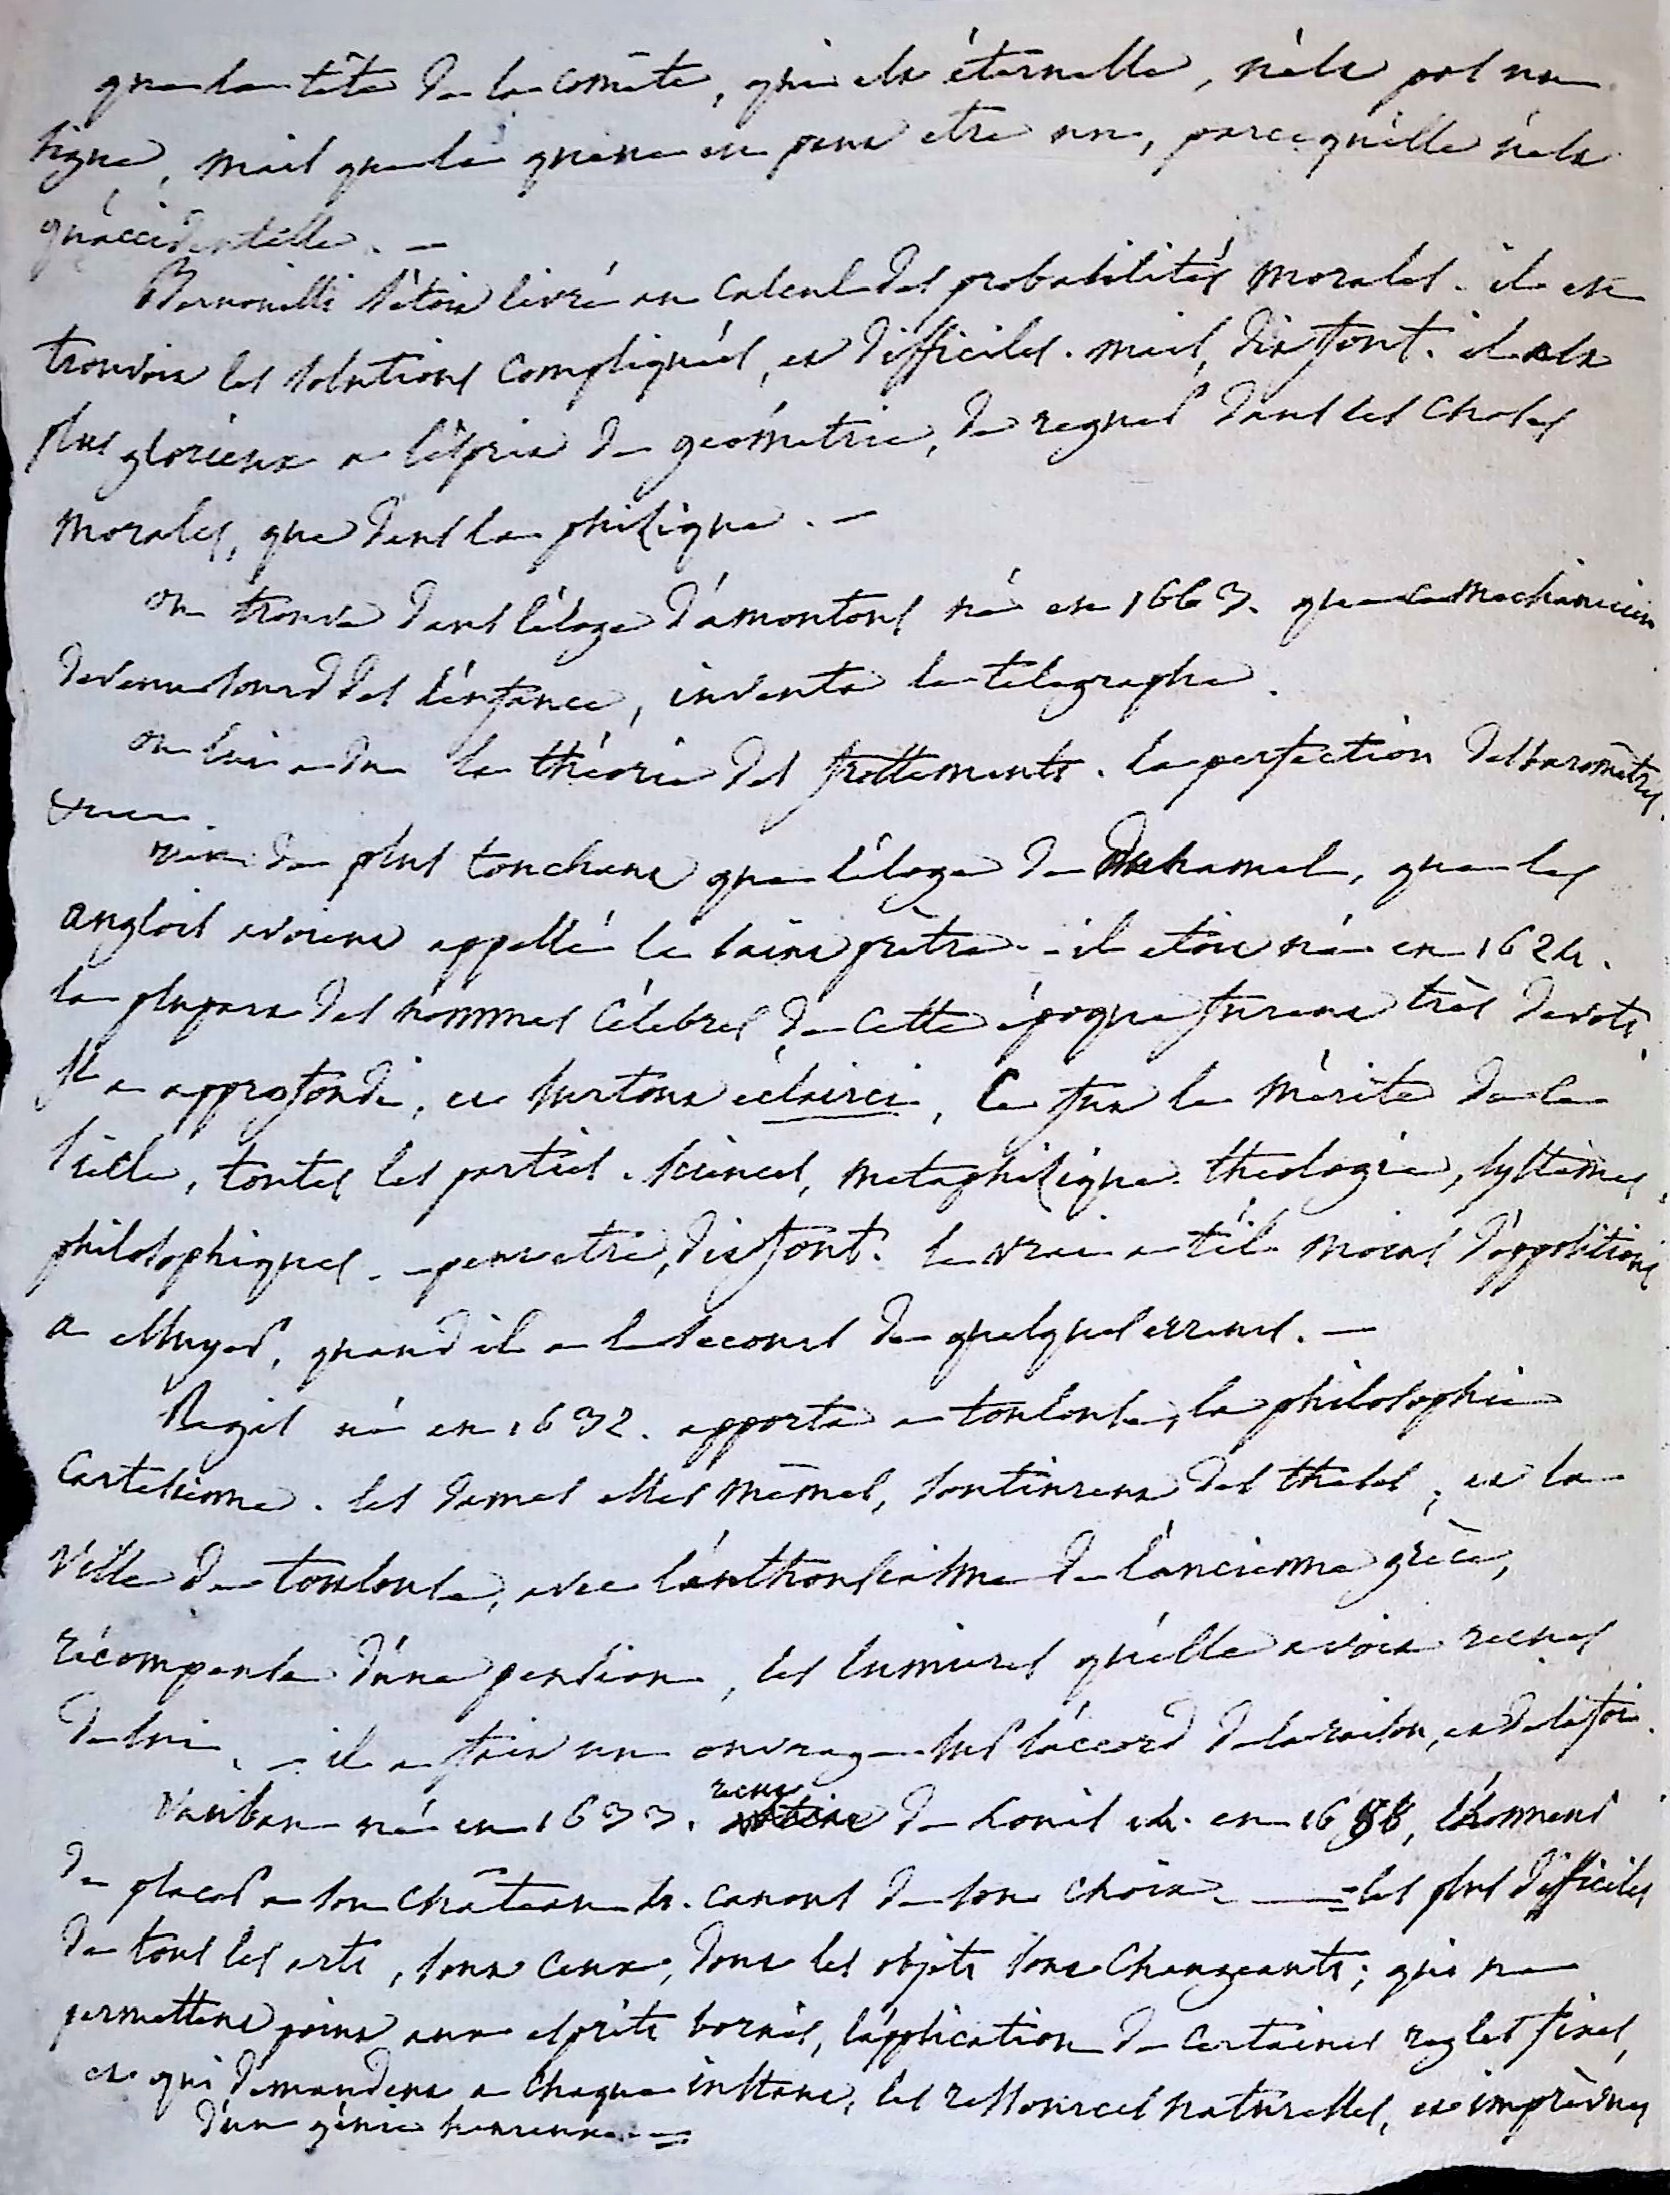 que la tête de la comète, qui est éternelle, n'est pas un
signe, mais que la queue en peut etre un, parcequ'elle n'est
qu'accidentelle. —
Bernouilli s'étoit livré au calcul des probabilités morales. il en
trouvoit les solutions compliquées, et difficiles. mais, dit font. il est
plus glorieux a l'esprit de géométrie, de regner dans les choses
morales, que dans la phisique. —
on trouve dans l'éloge d'amontons né en 1663. que ce mechanicien
devenu sourd des l'enfance, inventa le telegraphe.
on lui a du la théorie des frottements. la perfection des baromètres.
rien de plus touchant que l'éloge de Duhamel, que les
anglois avoient appellé le saint prêtre. - il etoit né en 1624.
la plupart des hommes célebres de cette époque furent très devots.
Il a approfondi, et surtout éclairci, ce fut le mérite de ce
siècle, toutes les parties. sciences, metaphisique. theologie, systèmes
philosophiques. - peut etre, dit font. le vrai a t'il moins d'oppositions
a essuyer, quand il a le secours de quelques erreurs. —
Regis né en 1632. apporta a toulouse, la philosophie
Cartesienne. les dames elles mêmes, soutinrent des theses; et la
Ville de toulouse, avec l'enthousiasme de l'ancienne grèce,
récompensa d'une pension, les lumieres qu'elle avoit recues
de lui. - il a fait un ouvrage sur l'accord de la raison, et de la foi.
Vauban né en 1633. recut de Louis 14. en 1688, l'honneur
de placer a son château 4. canons de son choix. — = les plus difficiles
de tous les arts, sont ceux, dont les objets sont changeants; qui ne
permettent point aux esprits bornés, l'application de certaines regles fixes,
et qui demandent a chaque instant, les ressources naturelles, et imprévues
d'un génie heureux. =